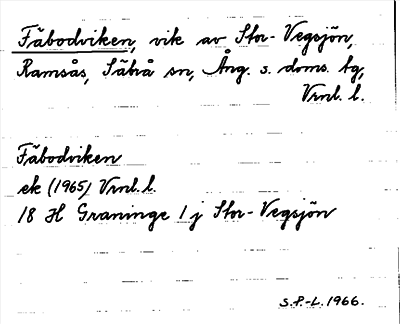 Fäbodviken, vik av Stor-Vegsjön,
Ramsås, Säbrå sn, Ång. s. doms. tg,
Vrnl. l.
Fäbodviken
ek (1965) Vrnl. l.
18 H Graninge 1 j Stor-Vegsjön
S.P.-L. 1966.